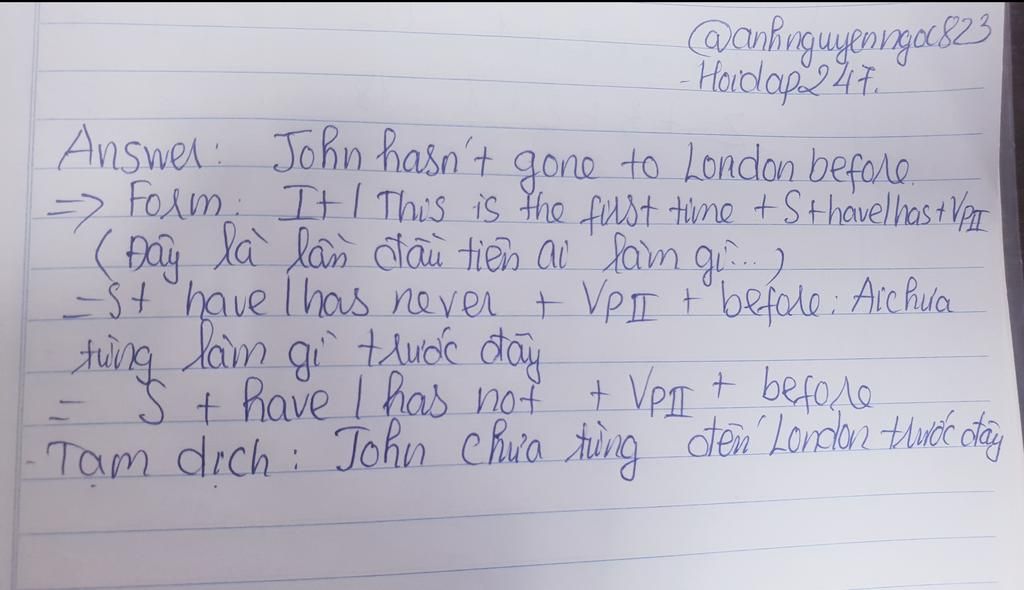 @anhnguyenngoc823
- Hoidap247.
Answer: John hasn't gone to London before.
=> Form: It / This is the first time + S + have/has + VpII
(Đây là lần đầu tiên ai làm gì...)
= S + have / has never + VpII + before: Ai chưa
từng làm gì trước đây
= S + have / has not + VpII + before
- Tạm dịch: John chưa từng đến London trước đây